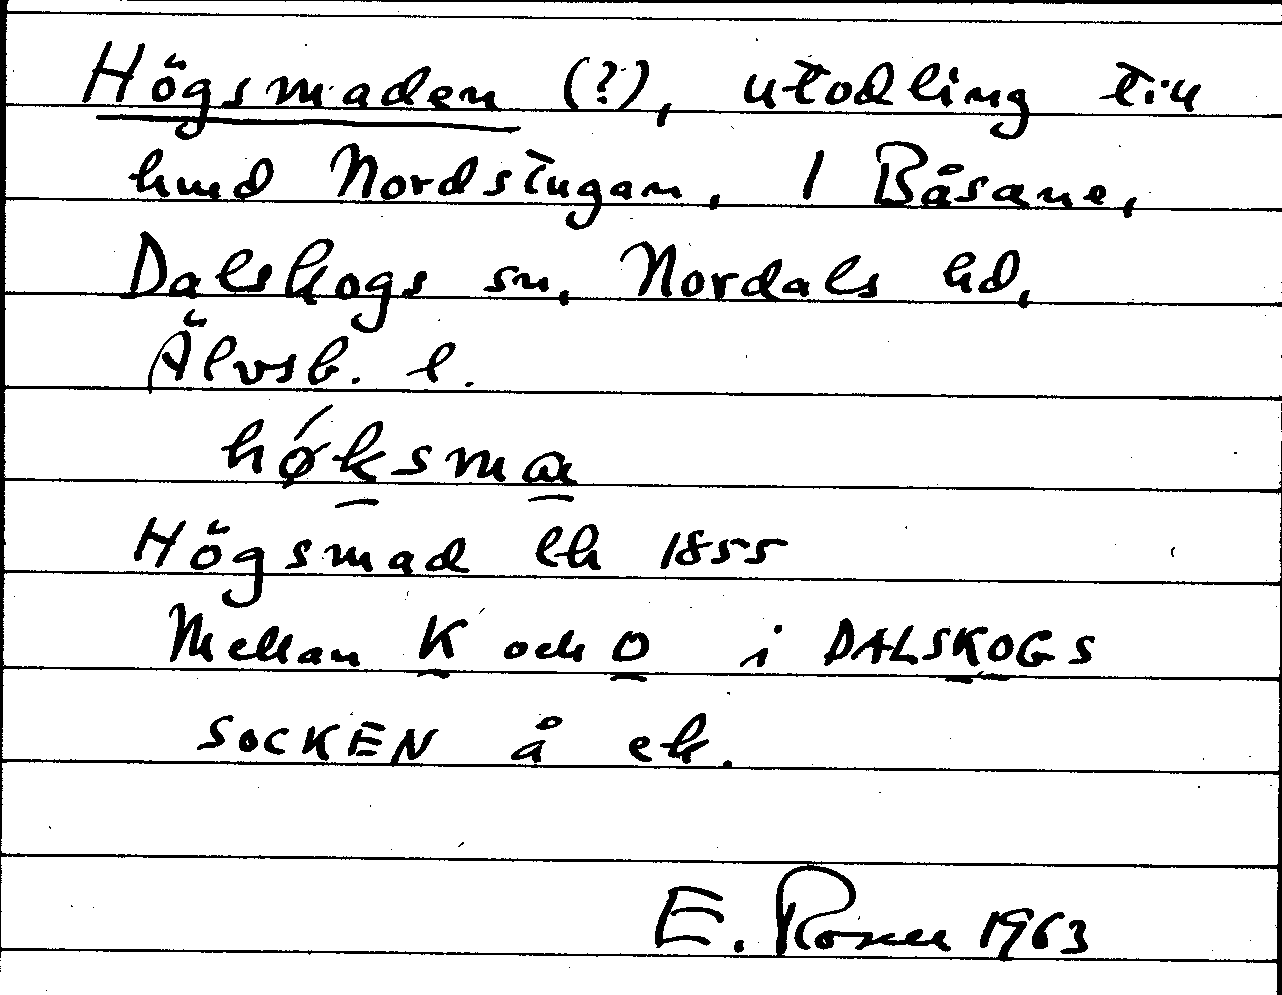 Högsmaden (?), utodling till
hmd Nordstugan, 1 Båsane,
Dalskogs sn, Nordals hd,
Älvsb. l.
hǿksmа
Högsmad lh 1855
Mellan K och O i DALSKOGS
SOCKEN å ek.
E. 1963